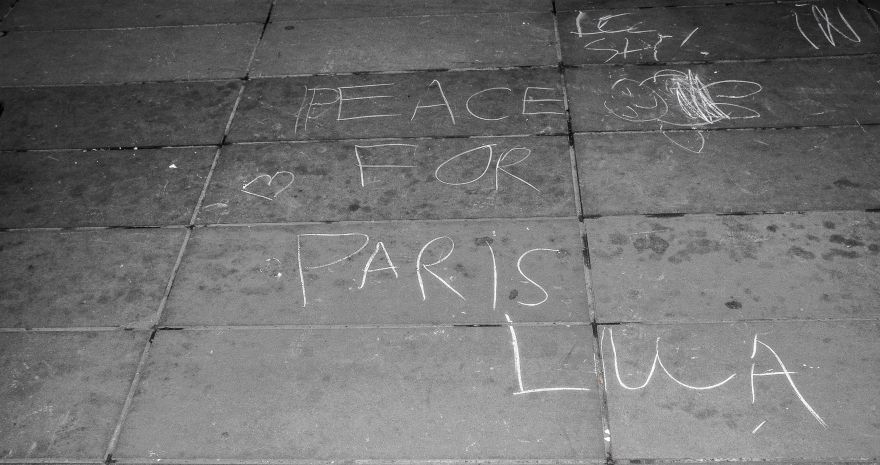 IN
PEACE
FOR
PARIS
LUCA